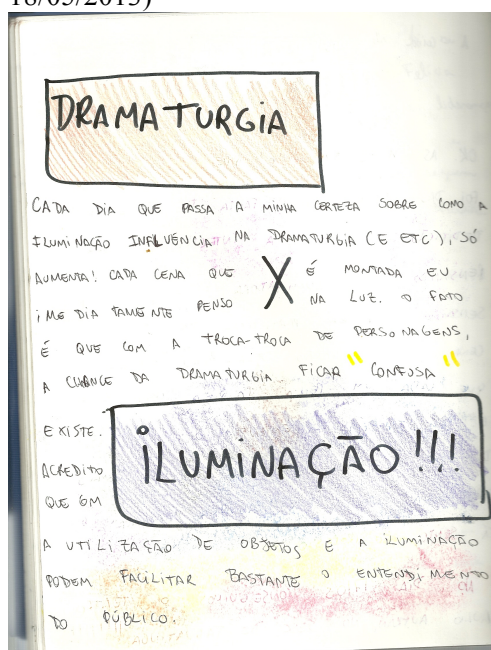 18/05/2013)
DRAMATURGIA
CADA DIA QUE PASSA A MINHA CERTEZA SOBRE COMO A
ILUMINAÇÃO INFLUÊNCIA NA DRAMATURGIA (E ETC), SÓ
AUMENTA! CADA CENA QUE X É MONTADA EU
IMEDIATAMENTE PENSO NA LUZ. O FATO
É QUE COM A TROCA-TROCA DE PERSONAGENS,
A CHANCE DA DRAMATURGIA FICAR "CONFUSA"
EXISTE.
ILUMINAÇÃO!!!
ACREDITO
QUE
A UTILIZAÇÃO DE OBJETOS E A ILUMINAÇÃO
PODEM FACILITAR BASTANTE O ENTENDIMENTO
DO PÚBLICO.